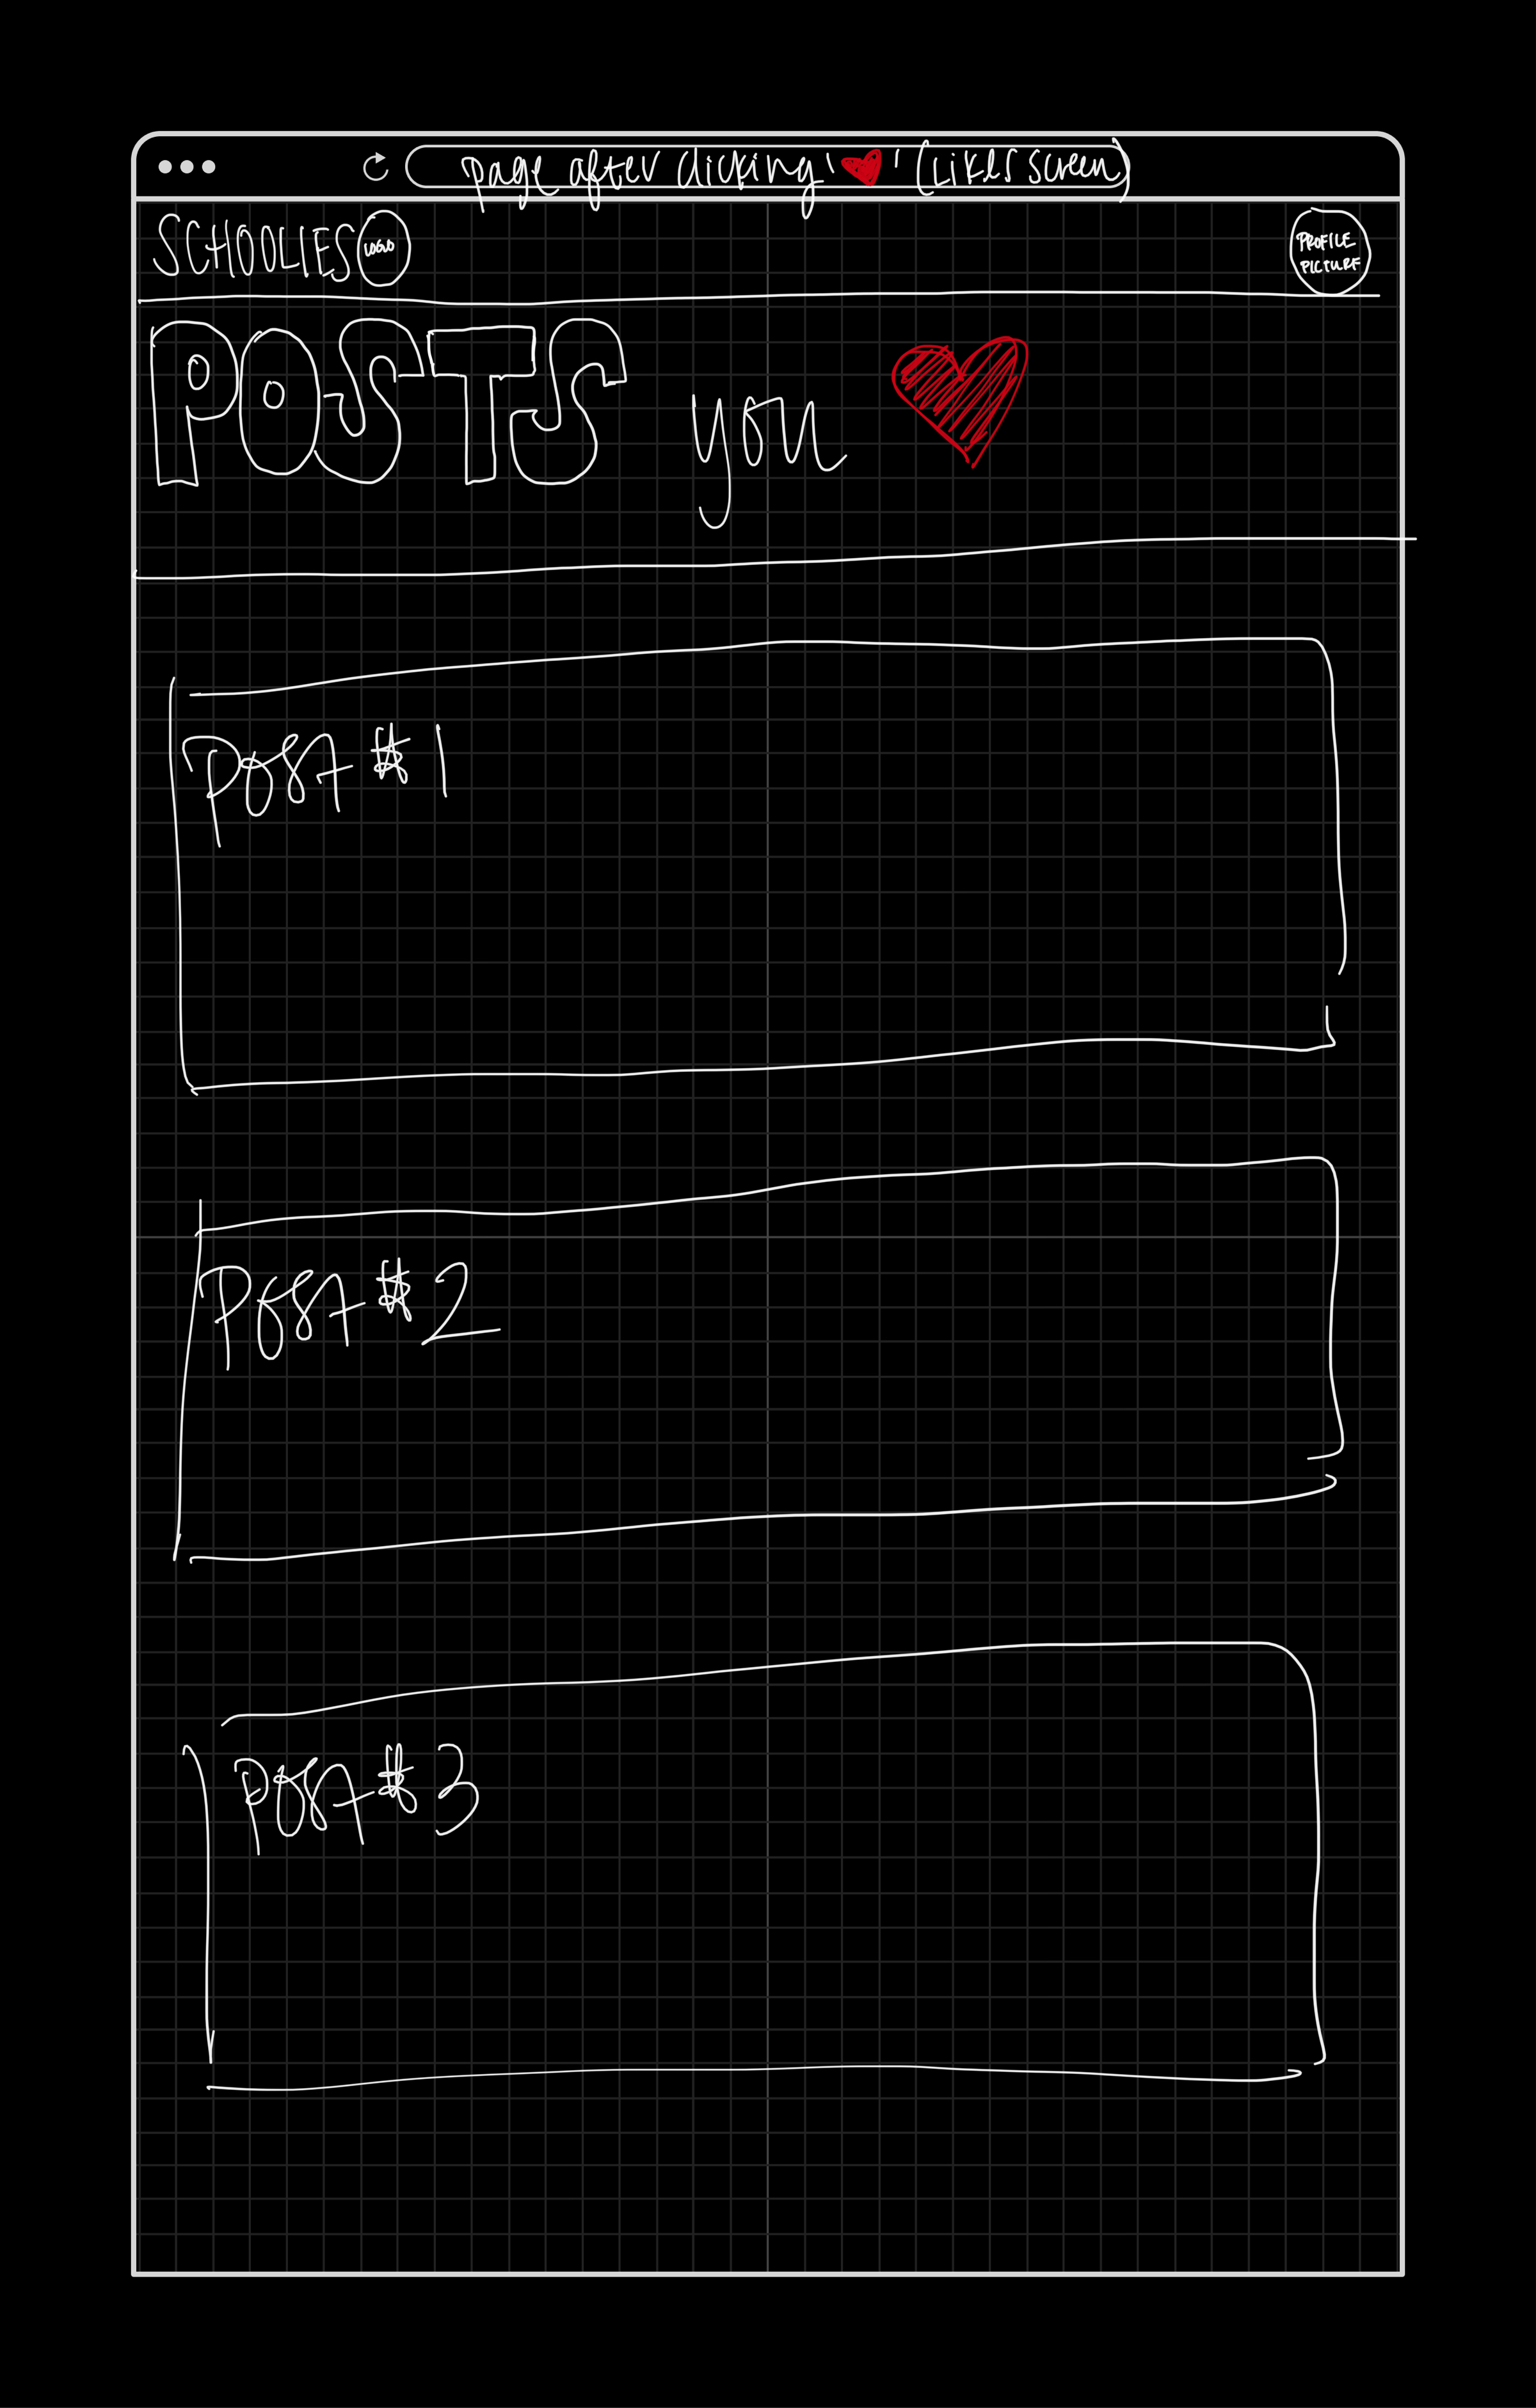 Page after clicking '❤' (Likes screen)
SCHOOLIES LOGO
PROFILE
PICTURE
POSTS you ❤
Post #1
Post #2
Post #3